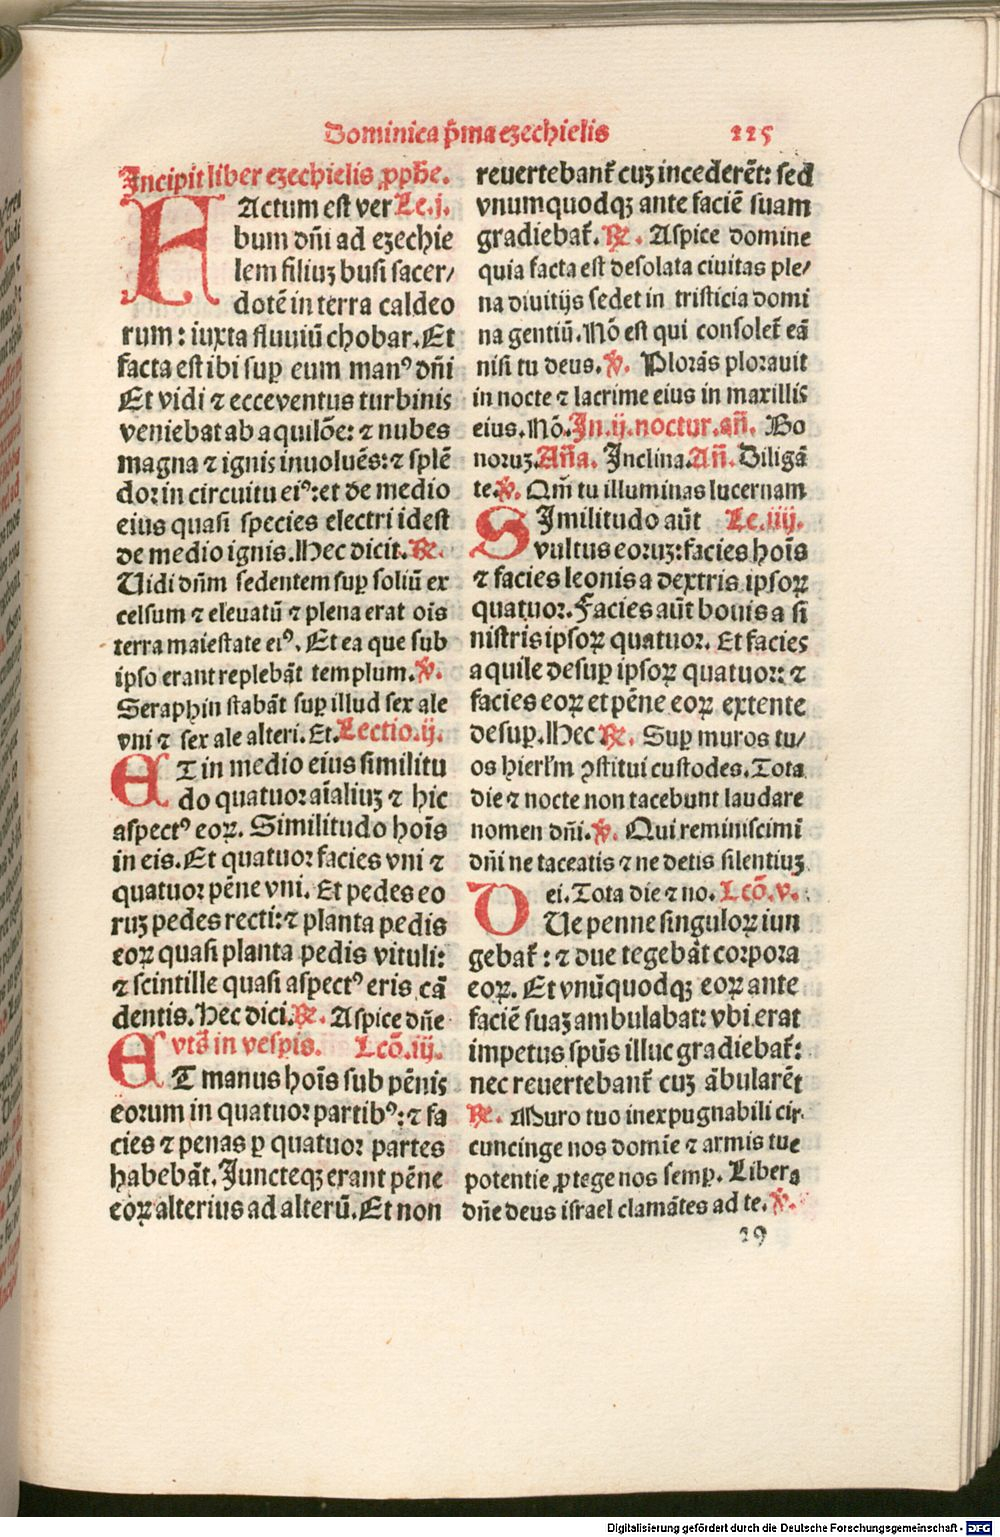 Dominica p̄ma ezechielis 225
Incipit liber ezechielis ꝓph̄e.
FActum est ver Le.j.
bum dn̄i ad ezechie
lem filiuꝫ busi sacer/
dotē in terra caldeo
rum: iuxta fluuiū chobar. Et
facta est ibi suꝑ eum manꝰ dn̄i
Et vidi ⁊ ecce ventus turbinis
veniebat ab aquilōe: ⁊ nubes
magna ⁊ ignis inuoluēs: ⁊ splē
dor in circuitu eiꝰ: et de medio
eius quasi species electri idest
de medio ignis. Hec dicit. ℟.
Uidi dn̄m sedentem suꝑ soliū ex
celsum ⁊ eleuatū ⁊ plena erat ois
terra maiestate eiꝰ. Et ea que sub
ipso erant replebāt templum. ℣.
Seraphin stabāt suꝑ illud sex ale
vni ⁊ sex ale alteri. Et. Lectio.ij.
ET in medio eius similitu
do quatuor aīaliuꝫ ⁊ hic
aspectꝰ eoꝝ. Similitudo hoīs
in eis. Et quatuor facies vni ⁊
quatuor pēne vni. Et pedes eo
ruꝫ pedes recti: ⁊ planta pedis
eoꝝ quasi planta pedis vituli:
⁊ scintille quasi aspectꝰ eris cā
dentis. Hec dici. ℟. Aspice dn̄e
vts̄ in vesꝑis. Lcō.iij.
ET manus hoīs sub pēnis
eorum in quatuor partibꝰ: ⁊ fa
cies ⁊ penas ꝑ quatuor partes
habebāt. Juncteqꝫ erant pēne
eoꝝ alterius ad alterū. Et non
reuertebant̄ cuꝫ incederēt: sed
vnumquodqꝫ ante faciē suam
gradiebat̄. ℟. Aspice domine
quia facta est desolata ciuitas ple/
na diuitijs sedet in tristicia domi
na gentiū. Nō est qui consolet̄ eā
nisi tu deus. ℣. Plorās plorauit
in nocte ⁊ lacrime eius in maxillis
eius. Nō. In.ij.noctur.an̄. Bo
noruꝫ. An̄a. Inclina. An̄. Diligā
te. ℣. Qm̄ tu illuminas lucernam
SImilitudo aūt Le.iiij.
vultus eoruꝫ: facies hoīs
⁊ facies leonis a dextris ipsoꝝ
quatuor. Facies aūt bouis a si
nistris ipsoꝝ quatuor. Et facies
aquile desuꝑ ipsoꝝ quatuor: ⁊
facies eoꝝ et pēne eoꝝ extente
desuꝑ. Hec ℟. Suꝑ muros tu/
os hierl̄m ꝯstitui custodes. Tota
die ⁊ nocte non tacebunt laudare
nomen dn̄i. ℣. Qui reminiscimī
dn̄i ne taceatis ⁊ ne detis silentiuꝫ
ei. Tota die ⁊ no. Lcō.v.
DUe penne singuloꝝ iun
gebat̄: ⁊ due tegebāt corpora
eoꝝ. Et vnūquodqꝫ eoꝝ ante
faciē suaꝫ ambulabat: vbi erat
impetus sp̄us illuc gradiebat̄:
nec reuertebant̄ cuꝫ ābularēt
℟. Muro tuo inexpugnabili cir
cuncinge nos domīe ⁊ armis tue
potentie ꝓtege nos semꝑ. Libera
dn̄e deus israel clamātes ad te. ℣.
29
Digitalisierung gefördert durch die Deutsche Forschungsgemeinschaft - DFG